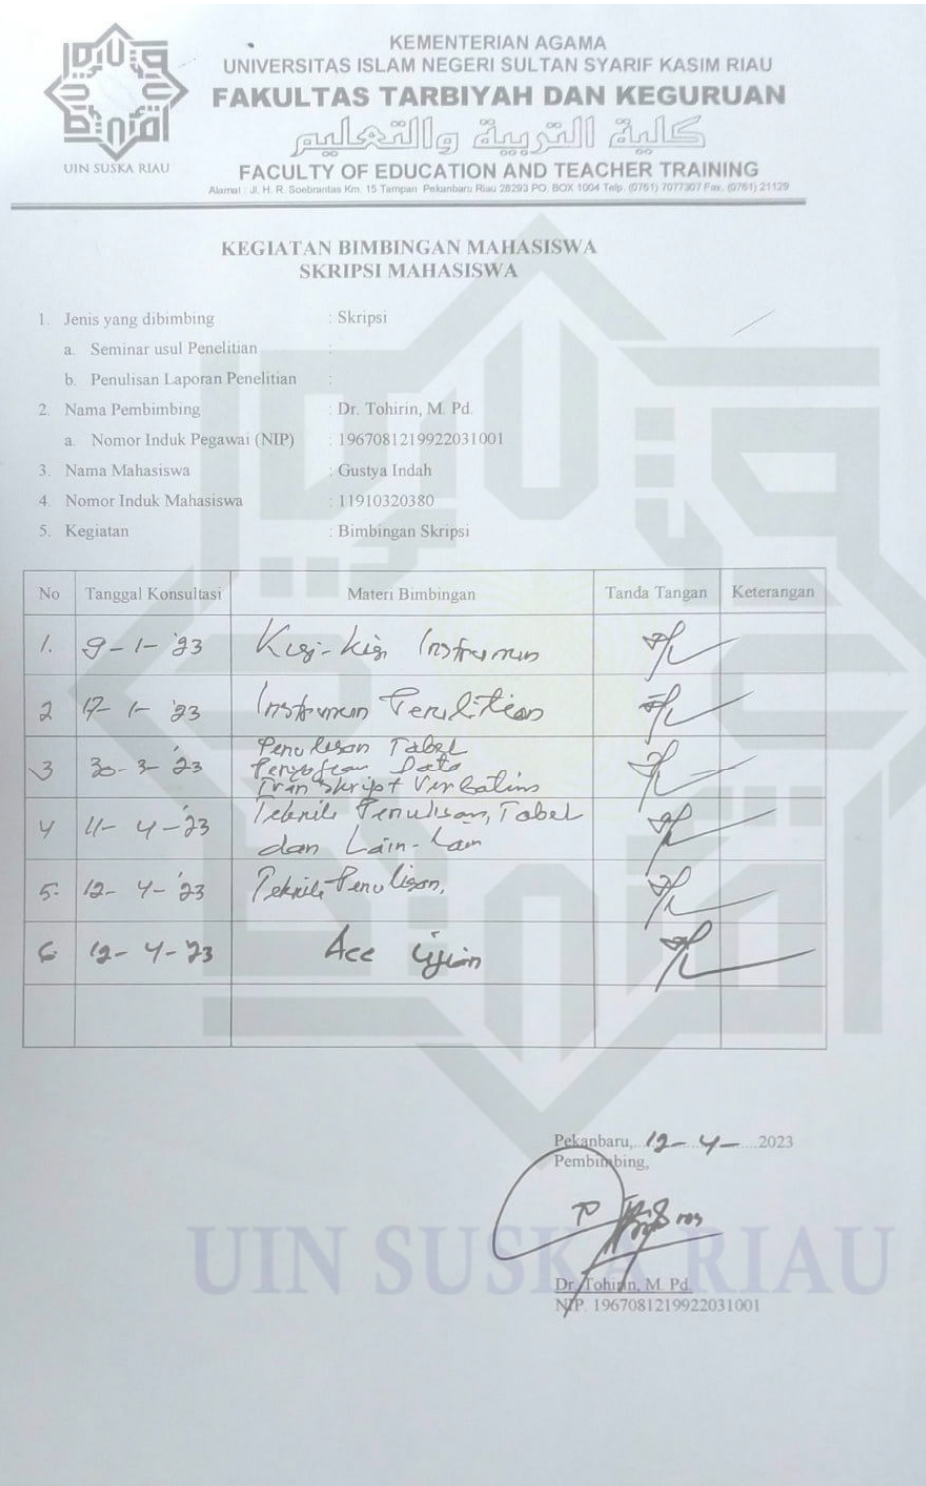 KEMENTERIAN AGAMA
UNIVERSITAS ISLAM NEGERI SULTAN SYARIF KASIM RIAU
FAKULTAS TARBIYAH DAN KEGURUAN
كلية التربية والتعليم
FACULTY OF EDUCATION AND TEACHER TRAINING
Alamat : Jl. H. R. Soebrantas Km. 15 Tampan Pekanbaru Riau 28293 PO. BOX 1004 Telp. (0761) 7077307 Fax. (0761) 21129
UIN SUSKA RIAU
KEGIATAN BIMBINGAN MAHASISWA
SKRIPSI MAHASISWA
1. Jenis yang dibimbing : Skripsi
a. Seminar usul Penelitian :
b. Penulisan Laporan Penelitian :
2. Nama Pembimbing : Dr. Tohirin, M. Pd.
a. Nomor Induk Pegawai (NIP) : 1967081219922031001
3. Nama Mahasiswa : Gustya Indah
4. Nomor Induk Mahasiswa : 11910320380
5. Kegiatan : Bimbingan Skripsi
No Tanggal Konsultasi Materi Bimbingan Tanda Tangan Keterangan
1. 9-1-'23 Kisi-kisi Instrumen
2 17-1-'23 Instrumen Penelitian
3 30-3-'23 Penulisan Tabel
Penyajian Data
Transkript Verbatim
4 11-4-'23 Teknik Penulisan, Tabel
dan Lain-Lain
5. 12-4-'23 Teknik Penulisan,
6 12-4-'23 Acc Ujian
Pekanbaru, 12-4-2023
Pembimbing,
UIN SUSKA RIAU
Dr. Tohirin, M. Pd.
NIP. 1967081219922031001